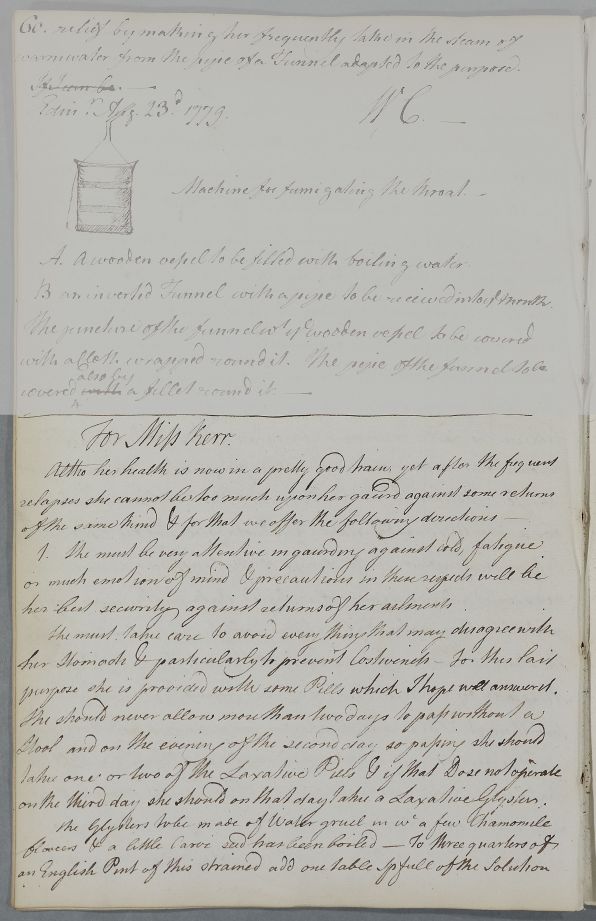 &c. relief by making her frequently take in the steam of
warm water from the pipe of a Funnel adapted to the purpose.
Edinr. 23d. 1779. W C. —
Machine for fumigating the throat. —
A. A wooden vessel to be filled with boiling water.
B an inverted Funnel with a pipe to be received into ye mouth.
The juncture of the funnel wt. ye wooden vessel to be covered
with a cloth wrapped round it. The pipe of the funnel to be
also by
covered with a fillet round it. —
For Miss Kerr.
Altho her health is now in a pretty good train, yet after the frequent
relapses she cannot be too much upon her gaurd against some returns
of the same kind & for that we offer the following directions —
1. She must be very attentive in gaurding against cold, fatigue
or much emotion of mind & precautions in these respects will be
her best security against returns of her ailments.
She must take care to avoid every thing that may disagree with
her Stomach & particularly to prevent Costiveness — for this last
purpose she is provided with some Pills which I hope will answer it.
She should never allow more than two days to pass without a
Stool and on the evening of the second day so passing she should
take one or two of the Laxative Pills & if that Dose not operate
on the third day she should on that day take a Laxative Glyster.
The Glysters to be made of Water gruel in wc. a few Chamomile
flowers & a little Carvi seed has been boiled — To three quarters of
an English Pint of this strained add one table Spfull of the Solution